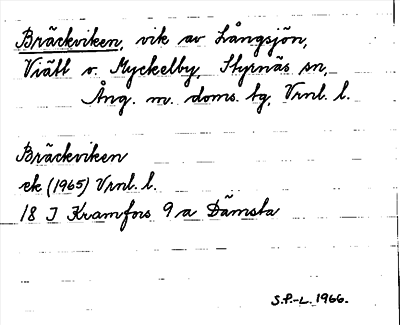 Bräckviken, vik av Långsjön,
Viätt v. Myckelby, Styrnäs sn,
Ång. m. doms. tg, Vrnl. l.
Bräckviken
ek (1965) Vrnl. l.
18 J Kramfors 9 a Dämsta
S.P.-L. 1966.